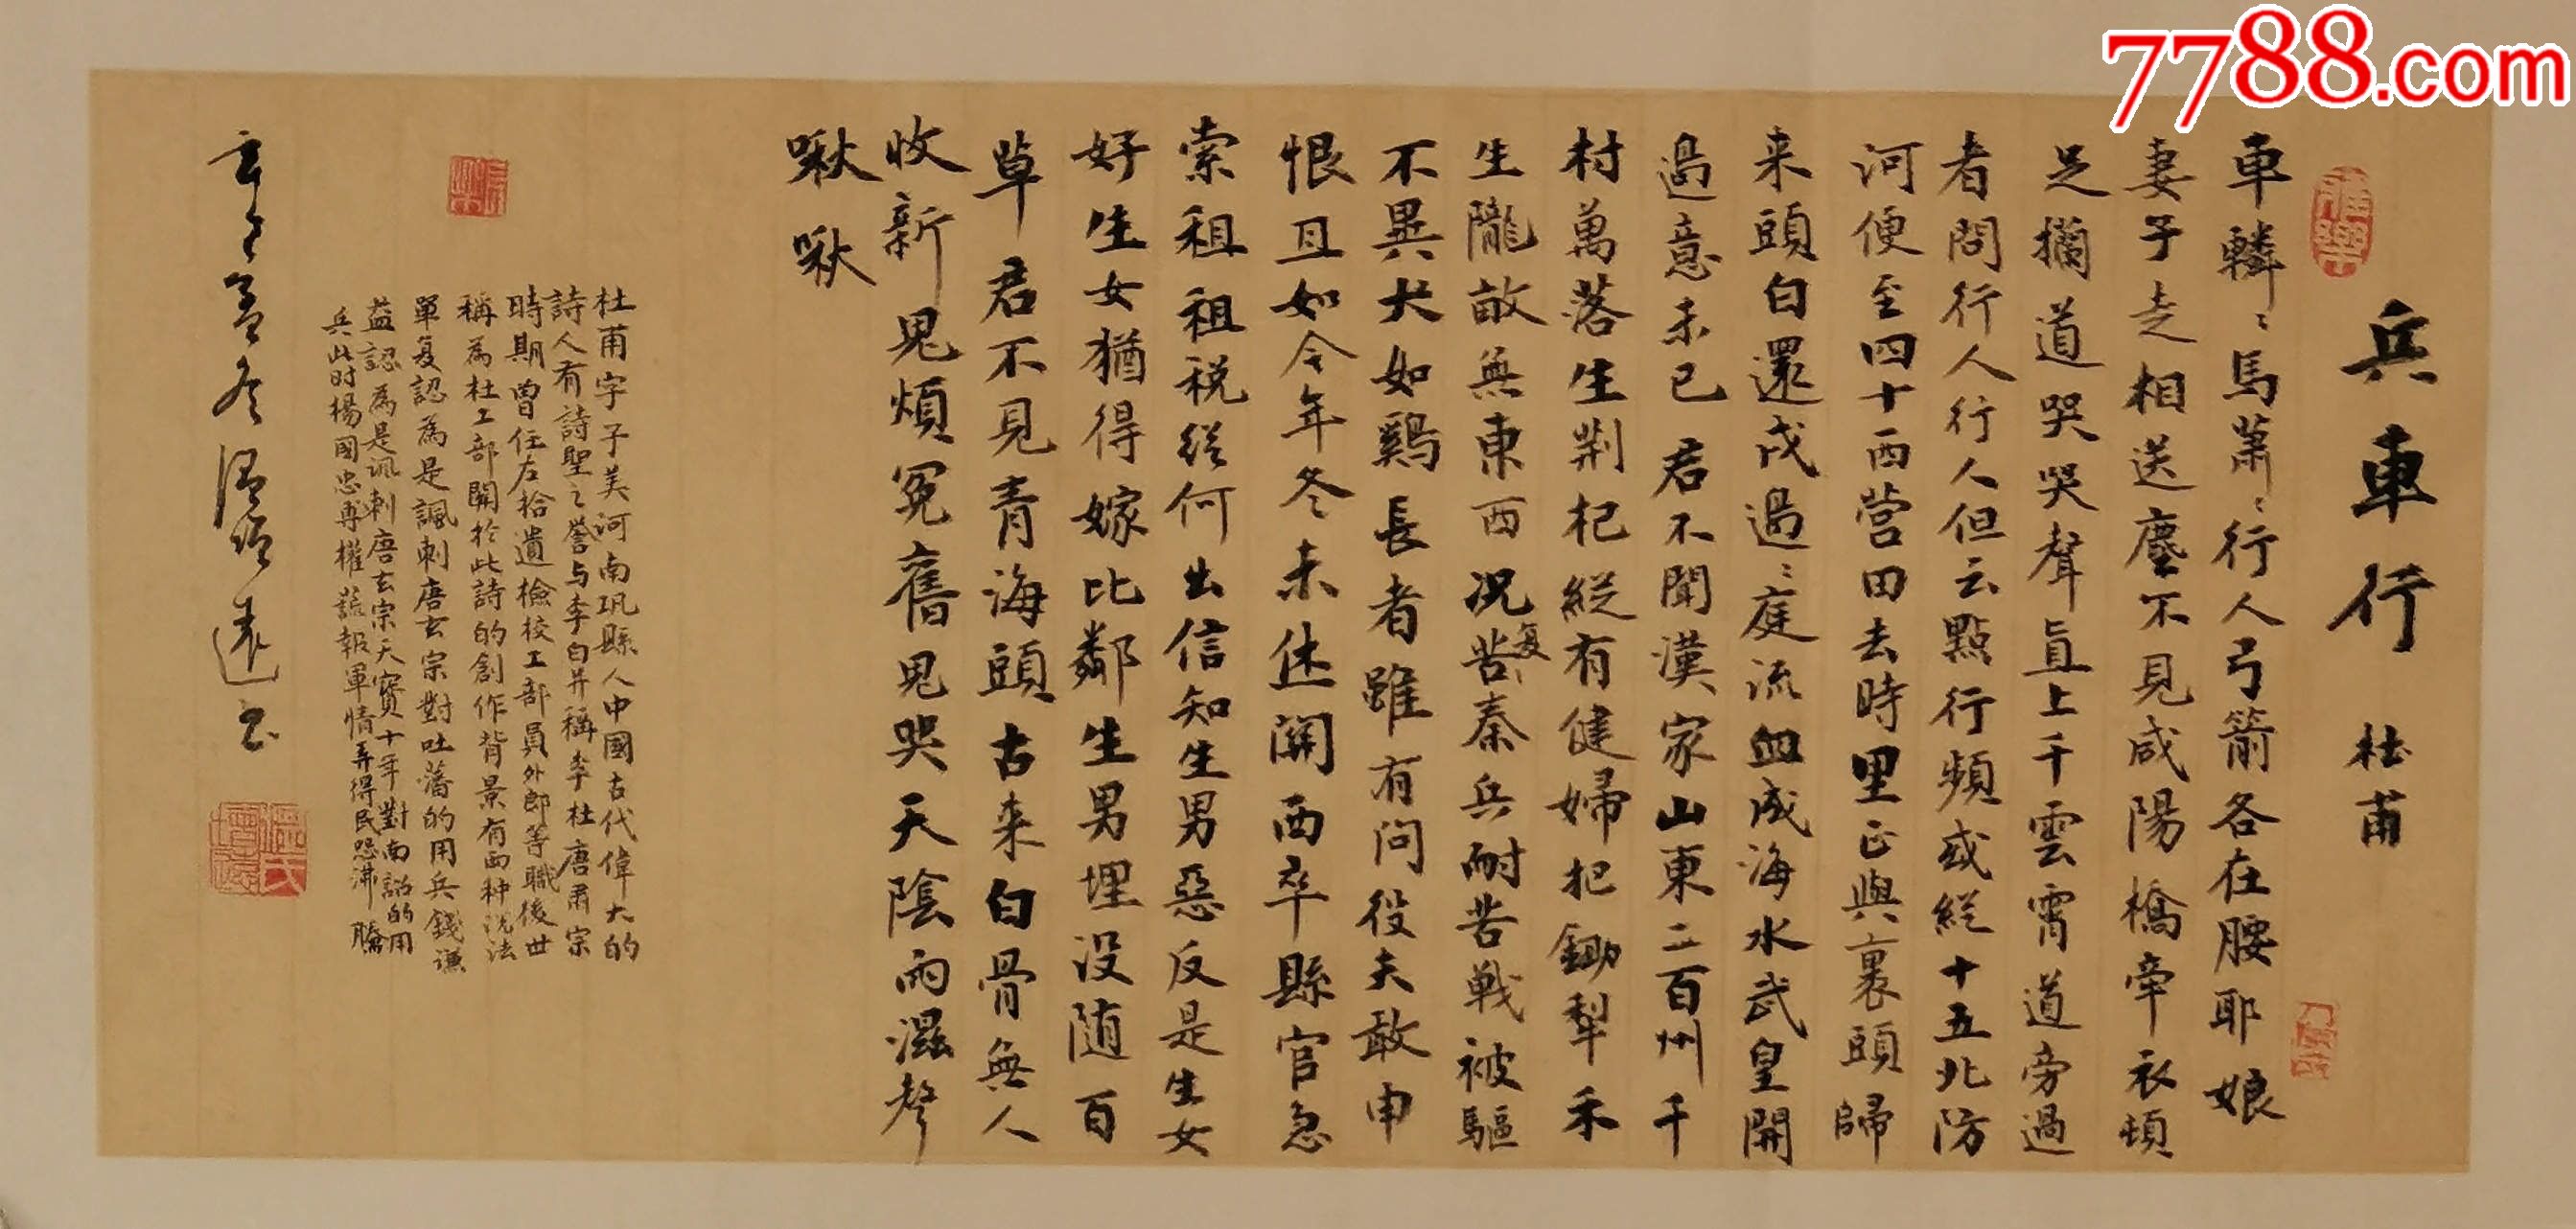 7788.com
兵車行 杜甫
車轔〻馬蕭〻行人弓箭各在腰耶娘
妻子走相送塵不見咸陽橋牽衣頓
足攔道哭哭聲直上千雲霄道旁過
者問行人行人但云點行頻或縱十五北防
河便至四十西营田去時里正與裹頭歸
来頭白還戍過〻庭流血成海水武皇開
過意未已君不聞漢家山東二百州千
村萬落生荆杞縱有健婦把鋤犁禾
生隴畝無東西况復苦秦兵耐苦戰被驅
不異犬如鷄長者雖有问役夫敢申
恨且如今年冬未休關西卒縣官急
索租祖税從何出信知生男惡反是生女
好生女猶得嫁比鄰生男埋没随百
草君不見青海頭古来白骨無人
收新鬼煩冤舊鬼哭天陰雨濕聲
啾啾
杜甫字子美河南巩縣人中國古代偉大的
詩人有詩聖之誉与李白并稱李杜唐肅宗
時期曾任左拾遺檢校工部員外郎等職後世
稱為杜工部關於此詩的創作背景有两种説法
單复認為是諷刺唐玄宗對吐蕃的用兵錢谦
益認為是讽刺唐玄宗天寶十年對南詔的用
兵此时楊國忠專權謊報軍情弄得民怨沸騰
遠书